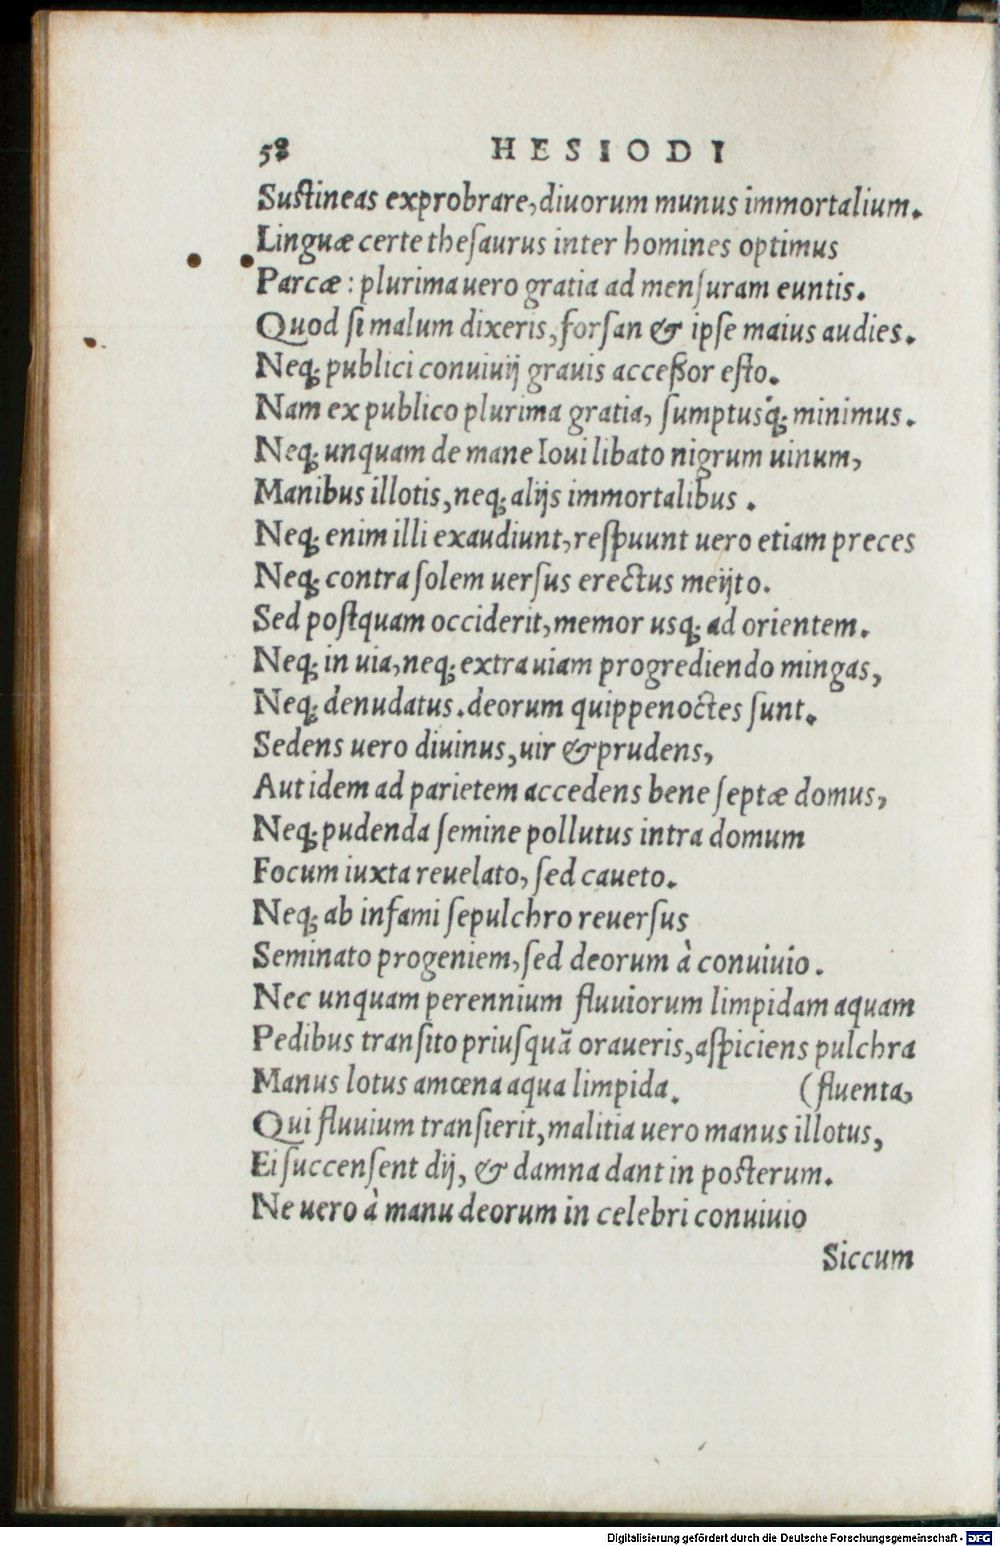 58 HESIODI
Sustineas exprobrare, diuorum munus immortalium.
Linguæ certe theſaurus inter homines optimus
Parcæ: plurima uero gratia ad menſuram euntis.
Quod ſi malum dixeris, forſan & ipſe maius audies.
Neq; publici conuiuij grauis acceßor eſto.
Nam ex publico plurima gratia, ſumptusq́; minimus.
Neq; unquam de mane Ioui libato nigrum uinum,
Manibus illotis, neq; alijs immortalibus.
Neq; enim illi exaudiunt, reſpuunt uero etiam preces
Neq; contra ſolem uerſus erectus meijto.
Sed poſtquam occiderit, memor usq; ad orientem.
Neq; in uia, neq; extra uiam progrediendo mingas,
Neq; denudatus. deorum quippe noctes ſunt.
Sedens uero diuinus, uir & prudens,
Aut idem ad parietem accedens bene ſeptæ domus,
Neq; pudenda ſemine pollutus intra domum
Focum iuxta reuelato, ſed caueto.
Neq; ab infami ſepulchro reuerſus
Seminato progeniem, ſed deorum à conuiuio.
Nec unquam perennium fluuiorum limpidam aquam
Pedibus tranſito priuſquã oraueris, aſpiciens pulchra
Manus lotus amœna aqua limpida. (fluenta,
Qui fluuium tranſierit, malitia uero manus illotus,
Ei ſuccenſent dij, & damna dant in poſterum.
Ne uero à manu deorum in celebri conuiuio
Siccum
Digitalisierung gefördert durch die Deutsche Forschungsgemeinschaft - DFG